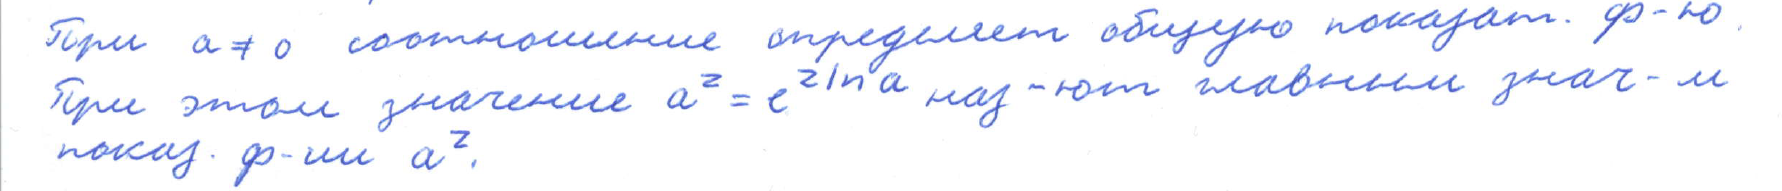 При a ≠ 0 соотношение определяет общую показат. ф-ю.
При этом значение a^z = e^{z ln a} наз-ют главным знач-м
показ. ф-ии a^z.